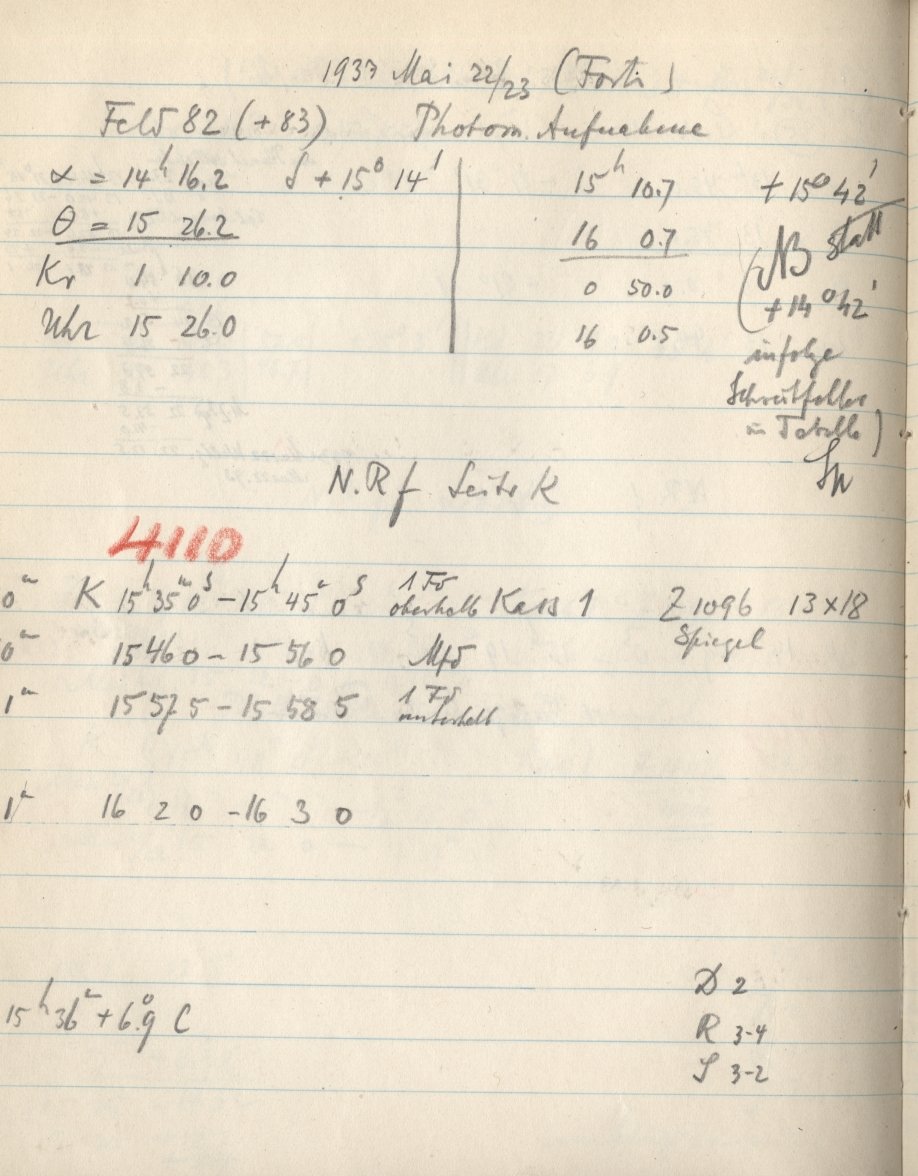 1937 Mai 22/23 (Forts)
Feld 82 (+83) Photom. Aufnahme
α = 14ʰ 16.2 δ + 15° 14'
θ = 15 26.2
Kr 1 10.0
Uhr 15 26.0
15ʰ 10.7 + 15° 42'
16 0.7
0 50.0
16 0.5
(NB statt
+ 14° 42'
infolge
Schreibfehler
in Tabelle)
N.R f Seite K
4110
0ᵐ K 15ʰ 35ᵐ 0ˢ – 15ʰ 45ᵐ 0ˢ 1 Fd oberhalb Kass 1 Z 1096 13×18
Spiegel
0ᵐ 15 46 0 – 15 56 0 Mfd
1ᵐ 15 57 5 – 15 58 5 1 Fd unterhalb
1ᵐ 16 2 0 – 16 3 0
15ʰ 36ᵐ + 6.°9 C
D 2
R 3-4
S 3-2